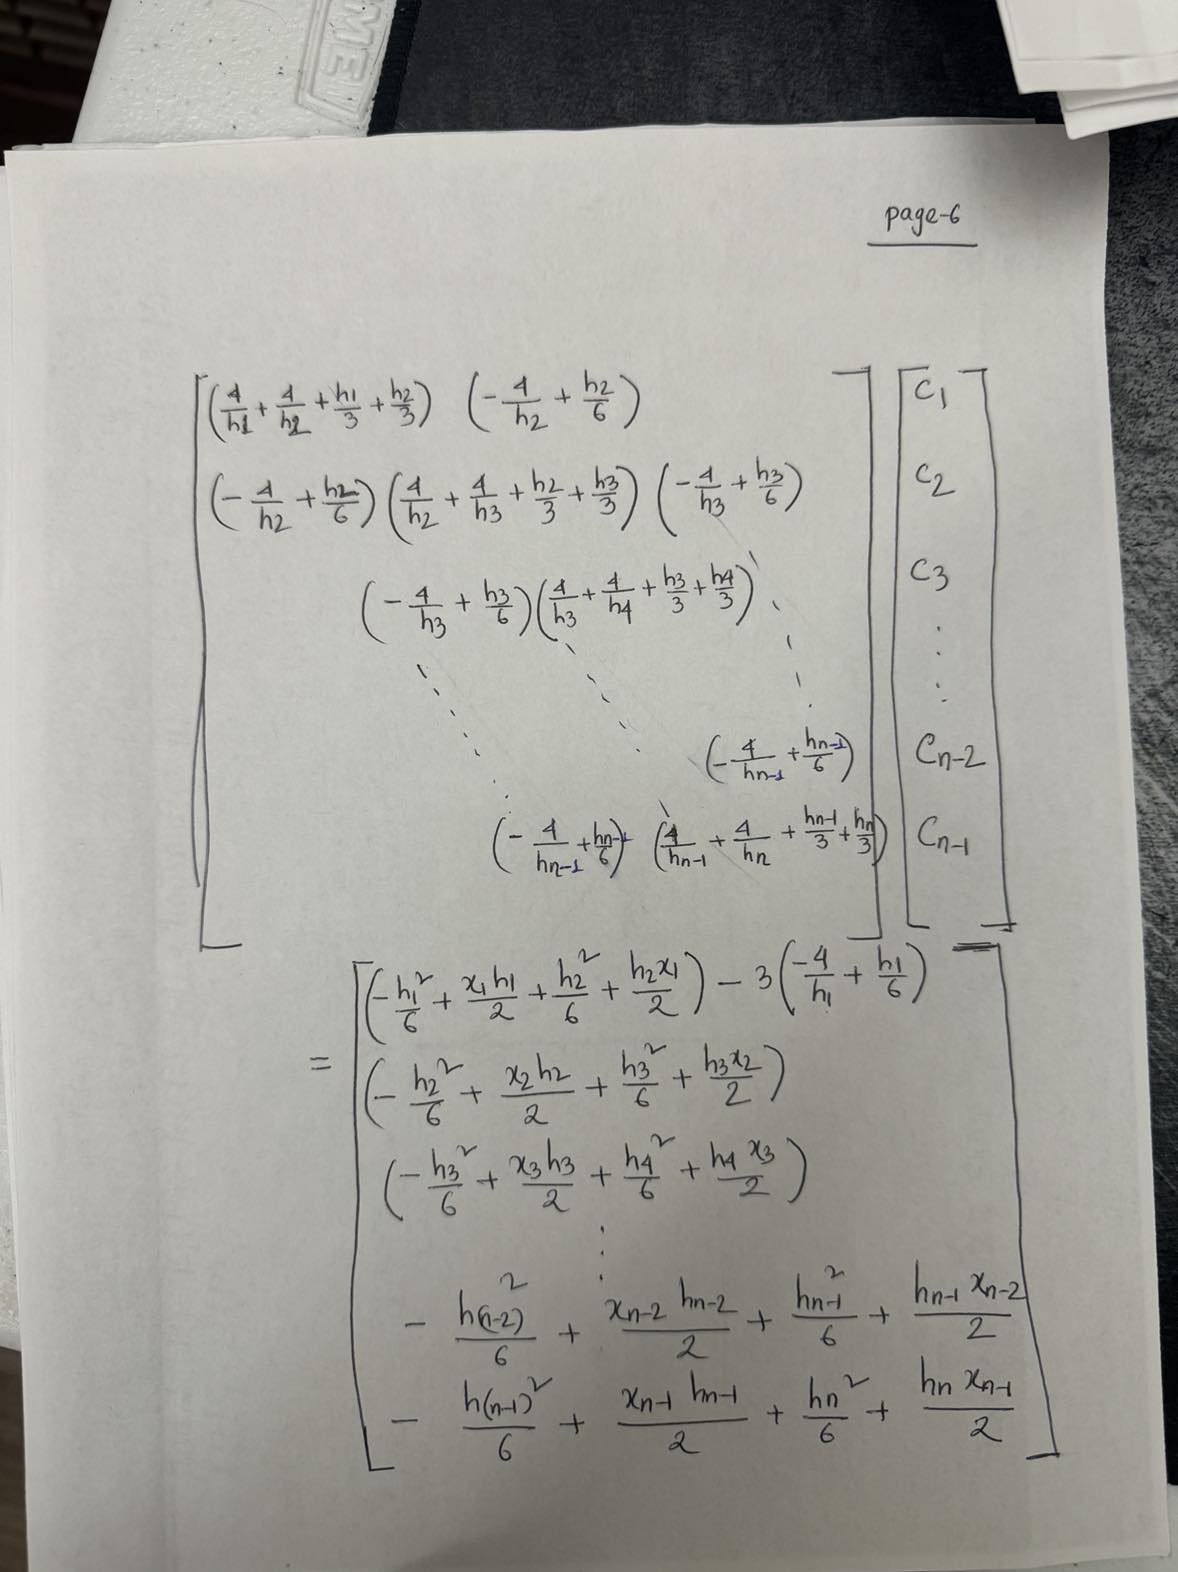 ME
page-6
(4/h1 + 4/h2 + h1/3 + h2/3) (-4/h2 + h2/6) C1
(-4/h2 + h2/6) (4/h2 + 4/h3 + h2/3 + h3/3) (-4/h3 + h3/6) C2
(-4/h3 + h3/6) (4/h3 + 4/h4 + h3/3 + h4/3) C3
(-4/hn-1 + hn-1/6) Cn-2
(-4/hn-1 + hn-1/6) (4/hn-1 + 4/hn + hn-1/3 + hn/3) Cn-1
= (-h1²/6 + x1h1/2 + h2²/6 + h2x1/2) - 3(-4/h1 + h1/6)
(-h2²/6 + x2h2/2 + h3²/6 + h3x2/2)
(-h3²/6 + x3h3/2 + h4²/6 + h4x3/2)
- h(n-2)²/6 + xn-2 hn-2/2 + hn-1²/6 + hn-1 xn-2/2
- h(n-1)²/6 + xn-1 hn-1/2 + hn²/6 + hn xn-1/2